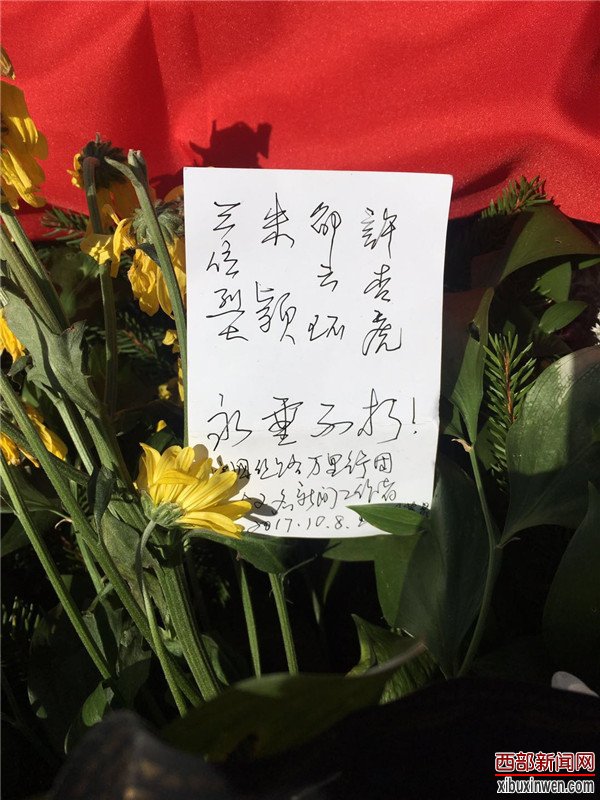 許杏虎
邵云环
朱颖
三位烈士
永垂不朽!
国丝路万里行团
名新闻工作者
2017.10.8.
西部新闻网
xibuxinwen.com